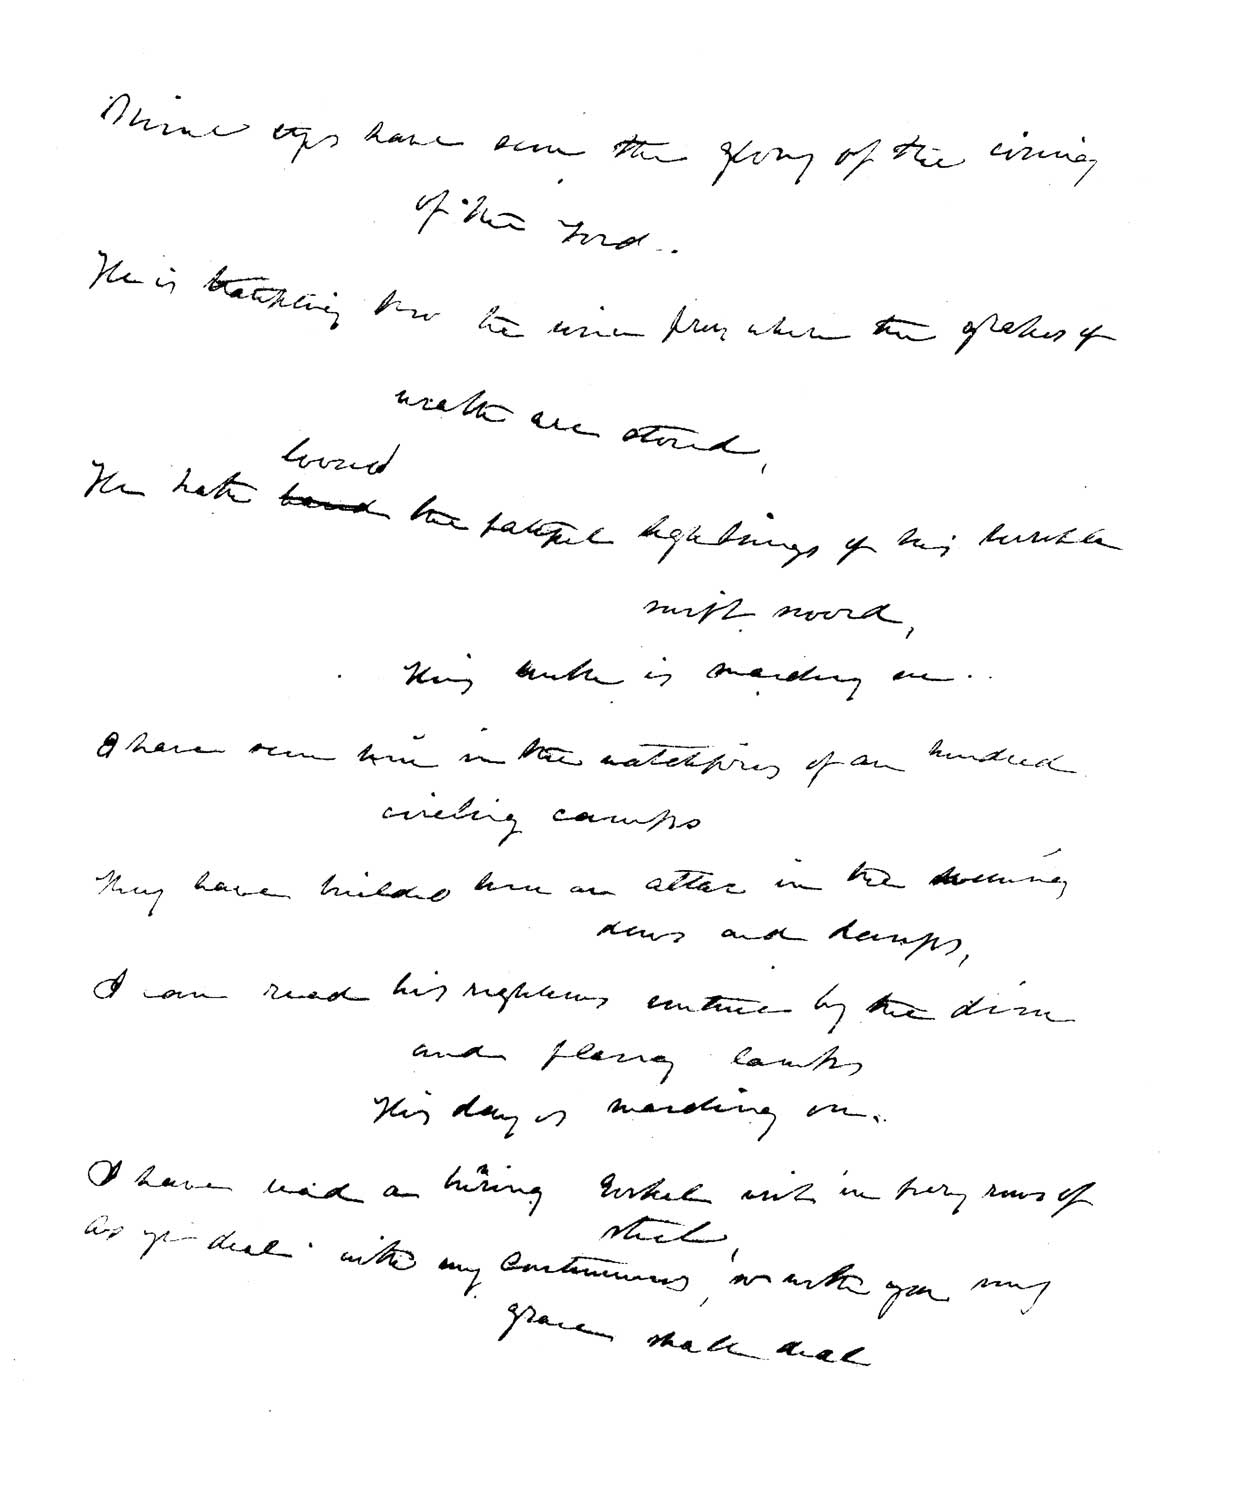 Mine eyes have seen the glory of the coming
of the Lord.
He is trampling the wine press where the grapes of
wrath are stored,
loosed
He hath the fateful lightnings of his terrible
swift sword,
His truth is marching on.
I have seen him in the watchfires of an hundred
circling camps
They have builded him an altar in the evening
dews and damps,
I can read his righteous sentence by the dim
and flaring lamps
His day is marching on.
I have read a burning Gospel writ in fiery rows of
steel,
As ye deal with my contemners, so with you my
grace shall deal